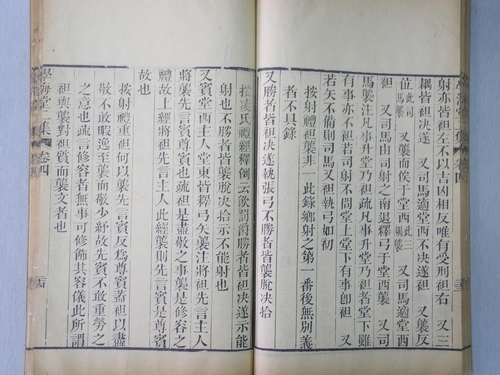 射亦皆袒左不以吉凶相反唯有受刑袒右　又三
耦皆袒決遂　又司馬適堂西不決遂袒　又襲反
位此司馬襲　又襲而俟于堂西此三耦襲　又司馬適堂西
袒　又司馬由司射之南退釋弓于堂西襲　又
馬襲注凡事升堂乃袒疏凡事升堂乃袒者堂下雖
有事亦不袒若司射不問堂上堂下有事卽袒　又
若矢不備則司馬又袒執弓如初
按射禮袒襲非一此錄鄉射之第一番後無別義
者不具錄
又勝者皆袒決遂執張弓不勝者皆襲脫決拾
按凌氏禮經釋例云飲罰爵勝者皆袒決遂示能
射也不勝者皆襲脫決拾示不能射也
又賓堂西主人堂東皆釋弓矢襲注將袒先言主人
將襲先言賓尊賓也疏袒是盡敬之事襲是修容之
禮故上經將袒先言主人此經襲則先言賓是尊賓
故也
按射禮重袒何以襲先言賓反爲尊賓蓋袒以盡
敬不敢暇逸至襲而敬少紓故先賓不敢重勞之
之意也疏言修容者無事可修飾其容儀此所謂
袒與襲對袒質而襲文者也
學海堂二集　卷四